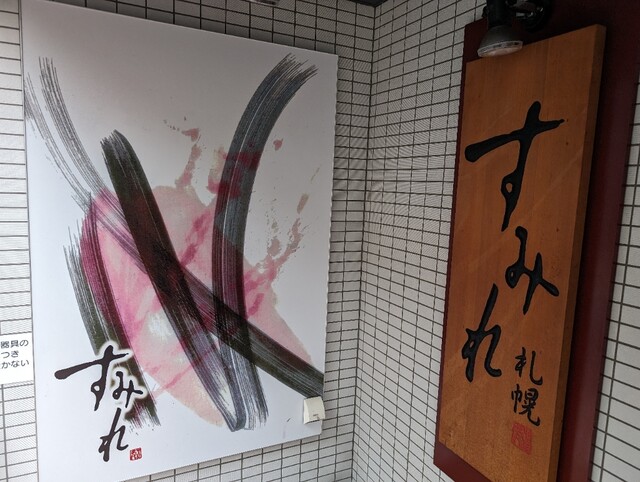 器具の
つき
かない
すみれ
すみれ
札幌